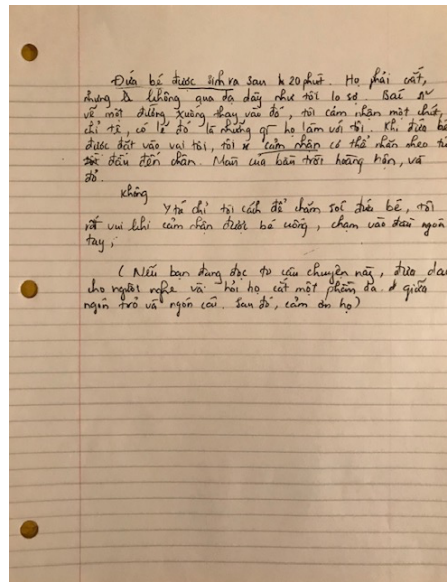 Đứa bé được sinh ra sau h 20 phút. Họ phải cắt,
nhưng là không qua dạ dày như tôi lo sợ. Bác sĩ
vẽ một đường xuống thay vào đó, tôi cảm nhận một chút,
chỉ tê, có lẽ đó là những gì họ làm với tôi. Khi đứa bé
được đặt vào vai tôi, tôi cảm nhận có thể nhấn theo từ
đầu đến chân. Man của bản trời hoàng hôn, và
đỏ.
Không
Y tá chỉ tôi cách để chăm sóc đứa bé, tôi
rất vui khi cảm nhận được bé uống, chạm vào đầu ngón
tay,
(Nếu bạn đang đọc to câu chuyện này, đưa dao
cho người nghe và hỏi họ cắt một phần da ở giữa
ngón trỏ và ngón cái. Sau đó, cảm ơn họ)